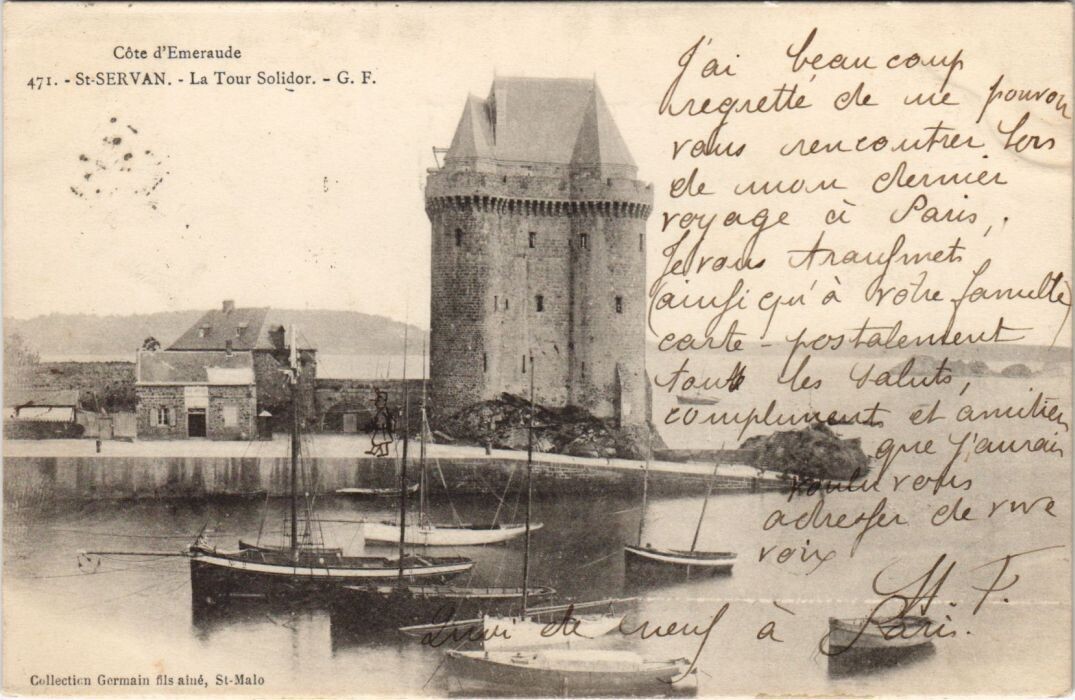 Côte d'Emeraude
471. - St-SERVAN. - La Tour Solidor. - G. F.
J'ai beaucoup
regretté de ne pouvoir
vous rencontrer lors
de mon dernier
voyage à Paris,
Je vous transmets
(ainsi qu'à votre famille)
carte-postalement
tous les saluts,
compliments et amitiés
que j'aurais
voulu vous
adresser de vive
voix
H. F.
de neuf à Paris.
Collection Germain fils aîné, St-Malo